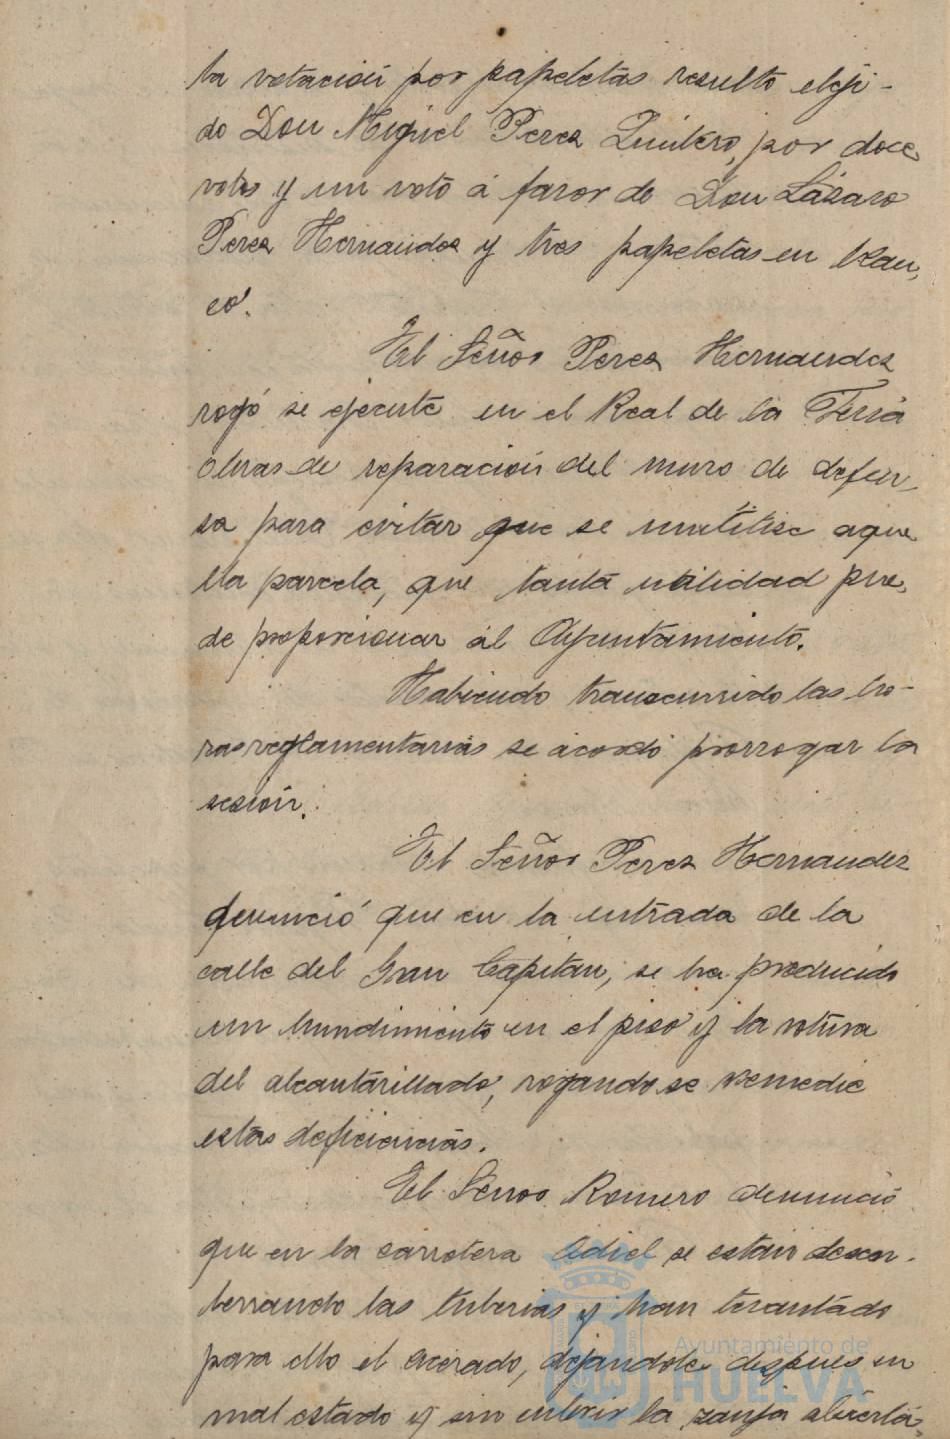 la votación por papeletas resulto eleji-
do Don Miguel Perez Quintero, por doce
votos y un voto á favor de Don Lázaro
Perez Hernandez y tres papeletas en blan-
co.
El Señor Perez Hernandez
rogó se ejecute en el Real de la Feria
obras de reparación del muro de defen-
sa para evitar que se inutilise aque
lla parcela, que tanta utilidad pue-
de proporcionar al Ayuntamiento.
Habiendo transcurrido las ho-
ras reglamentarias se acordó prorrogar la
sesión.
El Señor Perez Hernandez
denunció que en la entrada de la
calle del Gran Capitan, se ha producido
un hundimiento en el piso y la rotura
del alcantarillado, rogando se remedie
estas deficiencias.
El Señor Romero denunció
que en la carretera Odiel se estan desen-
terrando las tuberias y han levantado
para ello el acerado, dejandole despues en
mal estado y sin cubrir la zanja abierta,
Ayuntamiento de
HUELVA